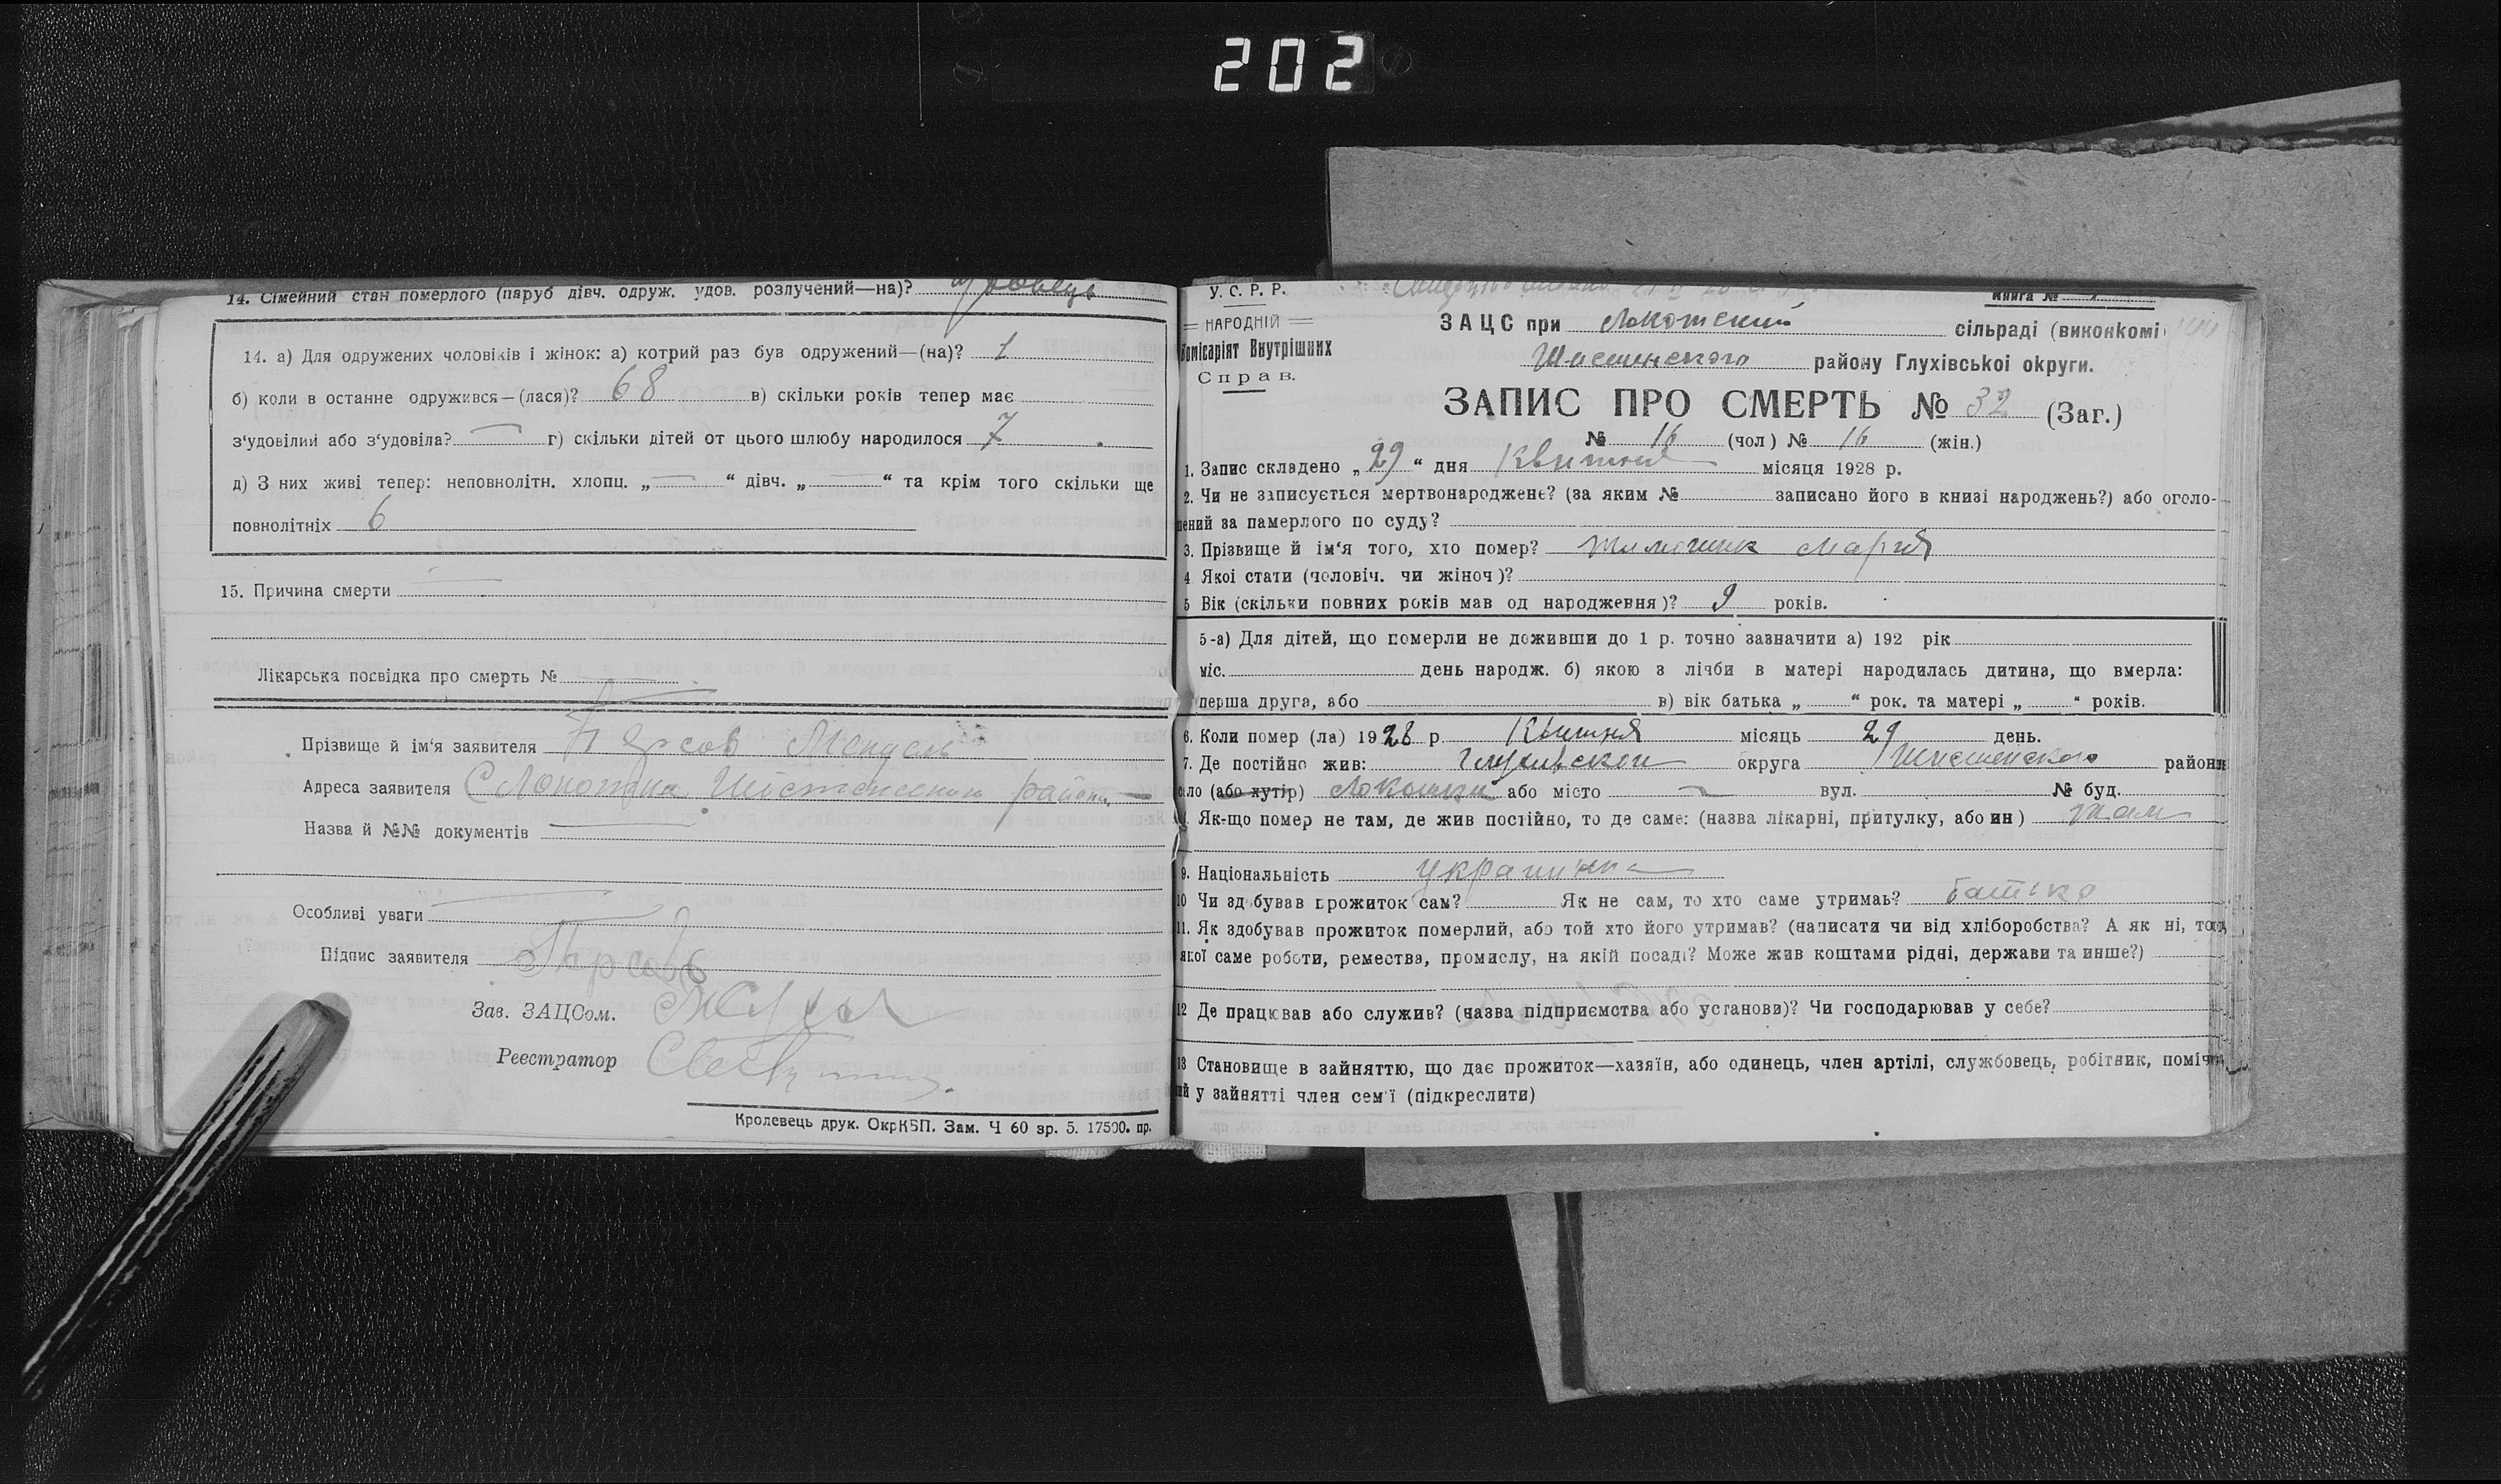 202
14. Сімейний стан померлого (паруб дівч. одруж. удов. розлучений—на)? удовець
14. а) Для одружених чоловіків і жінок: а) котрий раз був одружений—(на)? 1
б) коли в останне одружився—(лася)? 68 в) скільки років тепер має
з'удовілий або з'удовіла? г) скільки дітей от цього шлюбу народилося 7
д) З них живі тепер: неповнолітн. хлопц. „ — “ дівч. „ — “ та крім того скільки ще
повнолітніх 6
15. Причина смерти —
Лікарська посвідка про смерть № —
Прізвище й ім'я заявителя
Адреса заявителя С Локотки района
Назва й №№ документів —
Особливі уваги —
Підпис заявителя
Зав. ЗАЦСом.
Реестратор
Кролевець друк. ОкрКВП. Зам. Ч 60 зр. 5. 17500. пр.
У. С. Р. Р.
НАРОДНІЙ
Комісаріят Внутрішних
Справ.
Книга №
ЗАЦС при Локотский сільраді (виконкомі)
району Глухівської округи.
ЗАПИС ПРО СМЕРТЬ № 32 (Заг.)
№ 16 (чол) № 16 (жін.)
1. Запис складено „ 29 “ дня Квитня місяця 1928 р.
2. Чи не записується мертвонароджене? (за яким № записано його в книзі народжень?) або оголо-
шений за памерлого по суду?
3. Прізвище й ім'я того, хто помер? Мария
4 Якої стати (чоловіч. чи жіноч)?
5 Вік (скільки повних років мав од народження)? 9 років.
5-а) Для дітей, що померли не доживши до 1 р. точно зазначити а) 192 рік
міс. день народж. б) якою з лічби в матері народилась дитина, що вмерла:
перша друга, або в) вік батька „ “ рок. та матері „ “ років.
6. Коли помер (ла) 1928 р Квитня місяць 29 день.
7. Де постійно жив: Глухивской округа району
село (або хутір) Локотки або місто — вул. № буд.
Як-що помер не там, де жив постійно, то де саме: (назва лікарні, притулку, або ин) там
9. Національність украинка
10 Чи здобував прожиток сам? Як не сам, то хто саме утримав? батько
11. Як здобував прожиток померлий, або той хто його утримав? (написати чи від хліборобства? А як ні, тоді
якої саме роботи, ремества, промислу, на якій посаді? Може жив коштами рідні, держави та инше?)
12 Де працював або служив? (назва підприємства або установи)? Чи господарював у себе?
13 Становище в зайняттю, що дає прожиток—хазяїн, або одинець, член артілі, службовець, робітник, поміч
ний у зайнятті член сем'ї (підкреслити)